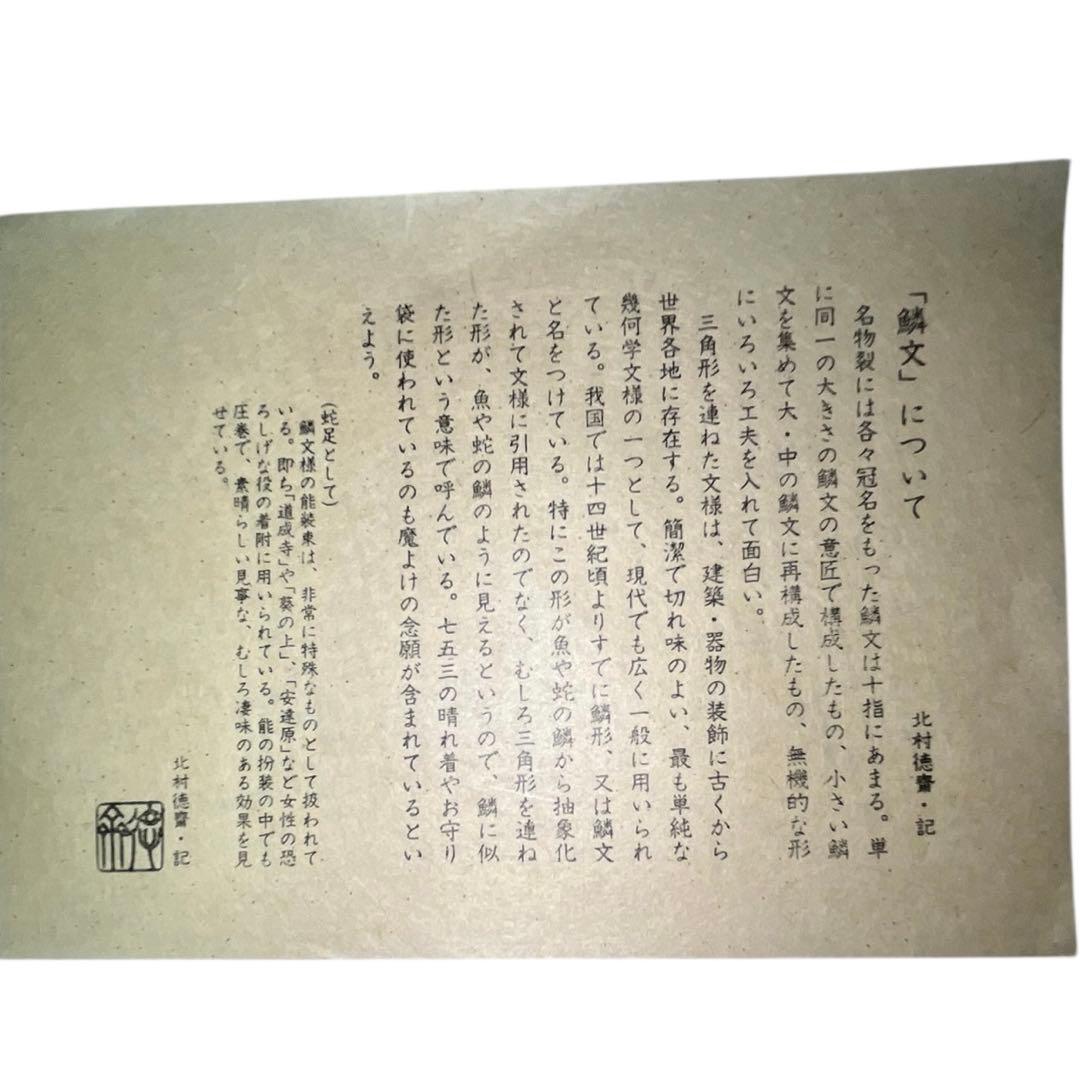 「鱗文」について
北村徳齋・記
名物裂には各々冠名をもった鱗文は十指にあまる。単
に同一の大きさの鱗文の意匠で構成したもの、小さい鱗
文を集めて大・中の鱗文に再構成したもの、無機的な形
にいろいろ工夫を入れて面白い。
三角形を連ねた文様は、建築・器物の装飾に古くから
世界各地に存在する。簡潔で切れ味のよい、最も単純な
幾何学文様の一つとして、現代でも広く一般に用いられ
ている。我国では十四世紀頃よりすでに鱗形、又は鱗文
と名をつけている。特にこの形が魚や蛇の鱗から抽象化
されて文様に引用されたのでなく、むしろ三角形を連ね
た形が、魚や蛇の鱗のように見えるというので、鱗に似
た形という意味で呼んでいる。七五三の晴れ着やお守り
袋に使われているのも魔よけの念願が含まれているとい
えよう。
(蛇足として)
鱗文様の能装束は、非常に特殊なものとして扱われて
いる。即ち「道成寺」や「葵の上」、「安達原」など女性の恐
ろしげな役の着附に用いられている。能の扮装の中でも
圧巻で、素晴らしい見事な、むしろ凄味のある効果を見
せている。
北村徳齋・記